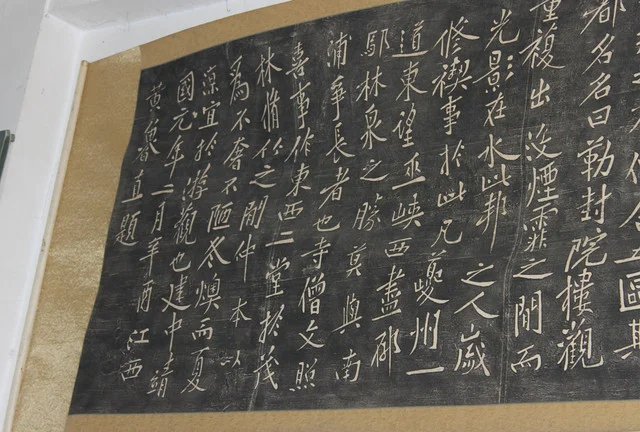 舍五區其
都名名曰勒封院樓觀
重複出沒煙霏之間而
光影在水此邦之人歲
修禊事於此凡夔州一
道東望巫峽西盡郁
鄢林泉之勝莫與南
浦爭長者也寺僧文照
喜事作東西二堂於茂
林脩竹之間仲本以
為不奢不陋冬燠而夏
涼宜於遊觀也建中靖
國元年二月辛酉江西
黃魯直題